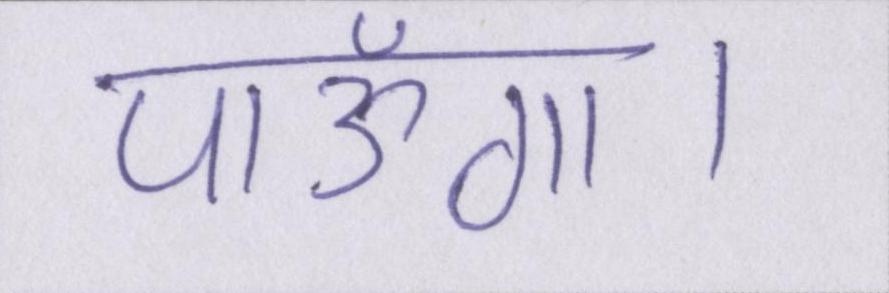 पाऊँगा।